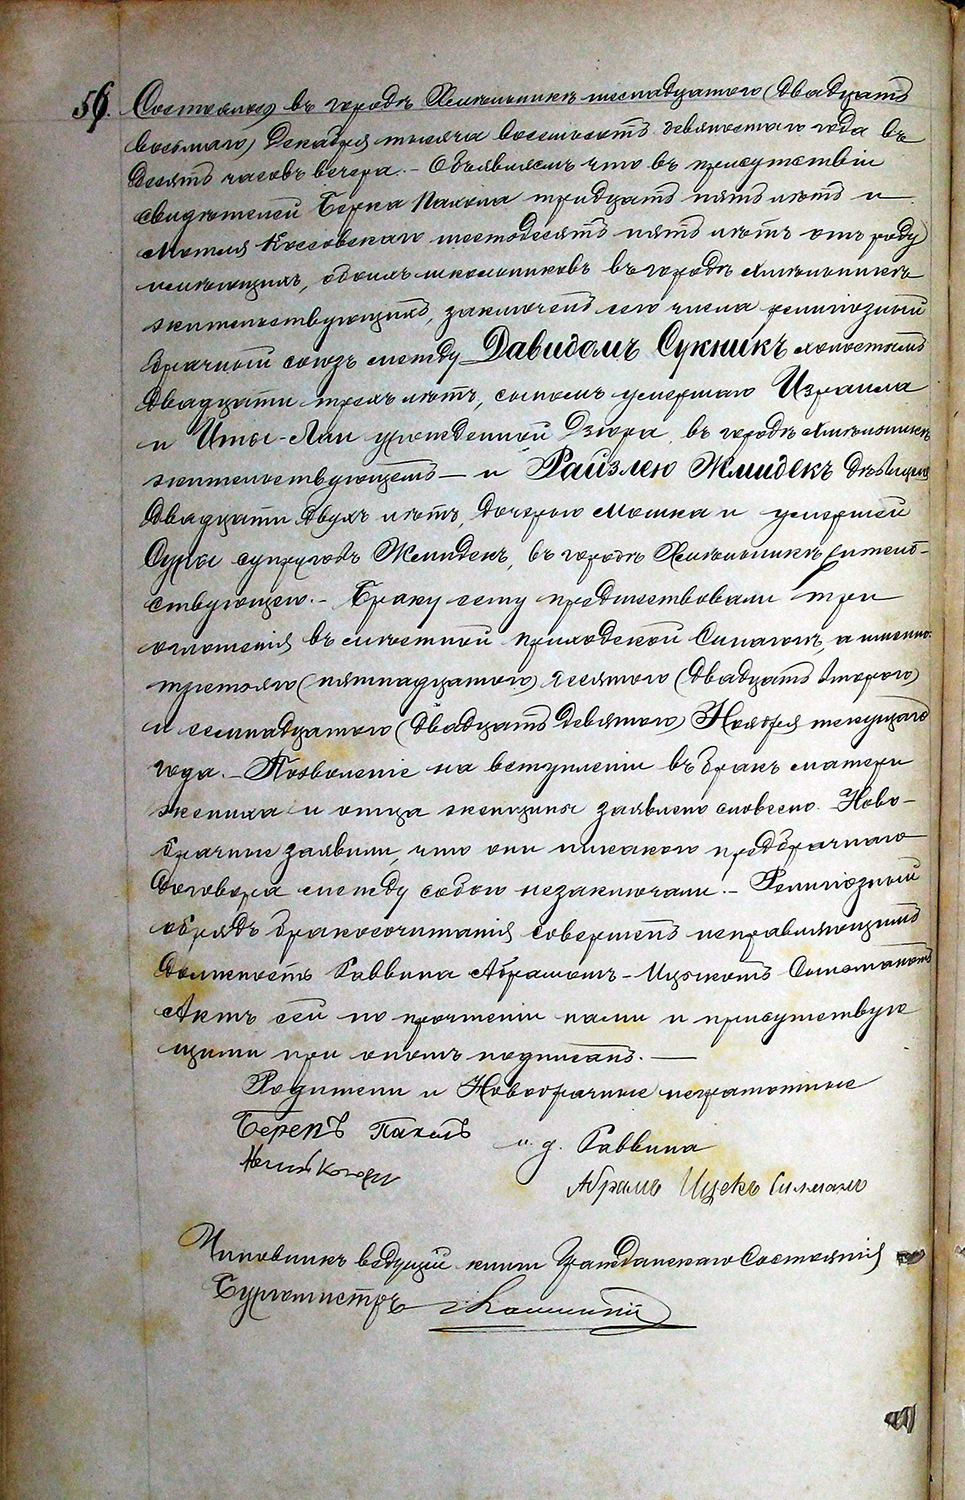 56. Состоялось въ городѣ Хмѣльникѣ шестнадцатого (двадцать
восьмаго) Декабря тысяча восемьсотъ девяностаго года въ
десять часовъ вечера. - Объявляемъ что въ присутствіи
свидѣтелей Берка Пахола тридцать пять лѣтъ и
Мотеля Коссовскаго шестьдесятъ пять лѣтъ отъ роду
имѣющихъ, обоихъ школьниковъ въ городѣ Хмѣльникѣ
жительствующихъ, заключенъ сего числа религіозный
брачный союзъ между Давидомъ Сукникъ холостымъ
двадцати трехъ лѣтъ, сыномъ умершаго Израиля
и Иты-Лаи урожденной Дзюра, въ городѣ Хмѣльникѣ
жительствующемъ - и Райзлею Жмидекъ дѣвицею
двадцати двухъ лѣтъ, дочерью Мошка и умершей
Суры супруговъ Жмидекъ, въ городѣ Хмѣльникѣ житель-
ствующею. - Браку сему предшествовали три
оглашенія въ мѣстной приходской Синагогѣ, а именно:
третьяго (пятнадцатого) десятого (двадцать второго)
и семнадцатого (двадцать девятого) Ноября текущаго
года. - Позволеніе на вступленіи въ бракъ матери
жениха и отца женщины заявлено словесно. Ново-
брачные заявили, что они никакого предбрачнаго
договора между собою незаключали. - Религіозный
обрядъ бракосочитанія совершенъ исправляющимъ
должность Раввина Абрамомъ-Ицкомъ
Актъ сей по прочтеніи нами и присутствую
щими при ономъ подписанъ. -
Родители и Новобрачные неграмотные
Берекъ Пахолъ
и. д. Раввина
Абрамъ Ицекъ
Чиновникъ ведущій книги Гражданскаго Состоянія
Бургомистръ